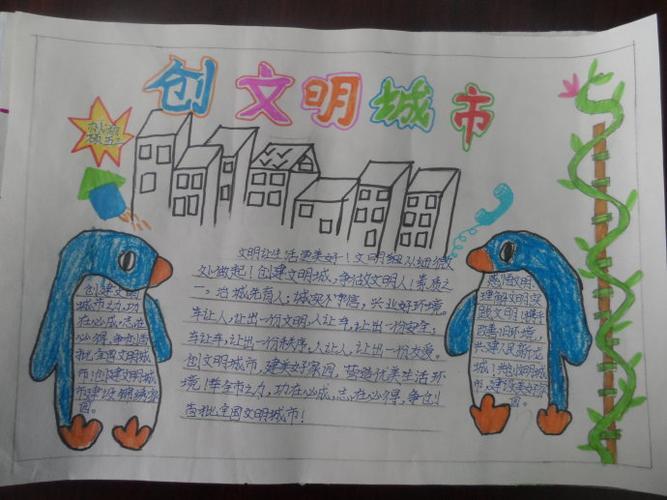 创文明城市
文明让生活更美好！文明细从细微
处做起！创建文明城，争做文明人！素质之
一。治城先育人；城实不守信，兴业好环境。
车让人，让出一份文明，人让车，让出一份安全；
车让车，让出一份秩序，人让人，让出一份友爱。
创文明城市，建美好家园，营造优美生活环
境！举全市之力，功在必成，志在必得，争创
首批全国文明城市！
创建文明
城市之力，功
在必成，志在
必得，争创首
批全国文明城
市！创建文明城
市建设
园。
文明
理解文明实
践文明！携手
改善旧环境，
共建人民新龙
城！共创文明城
市，建设美好家
园。